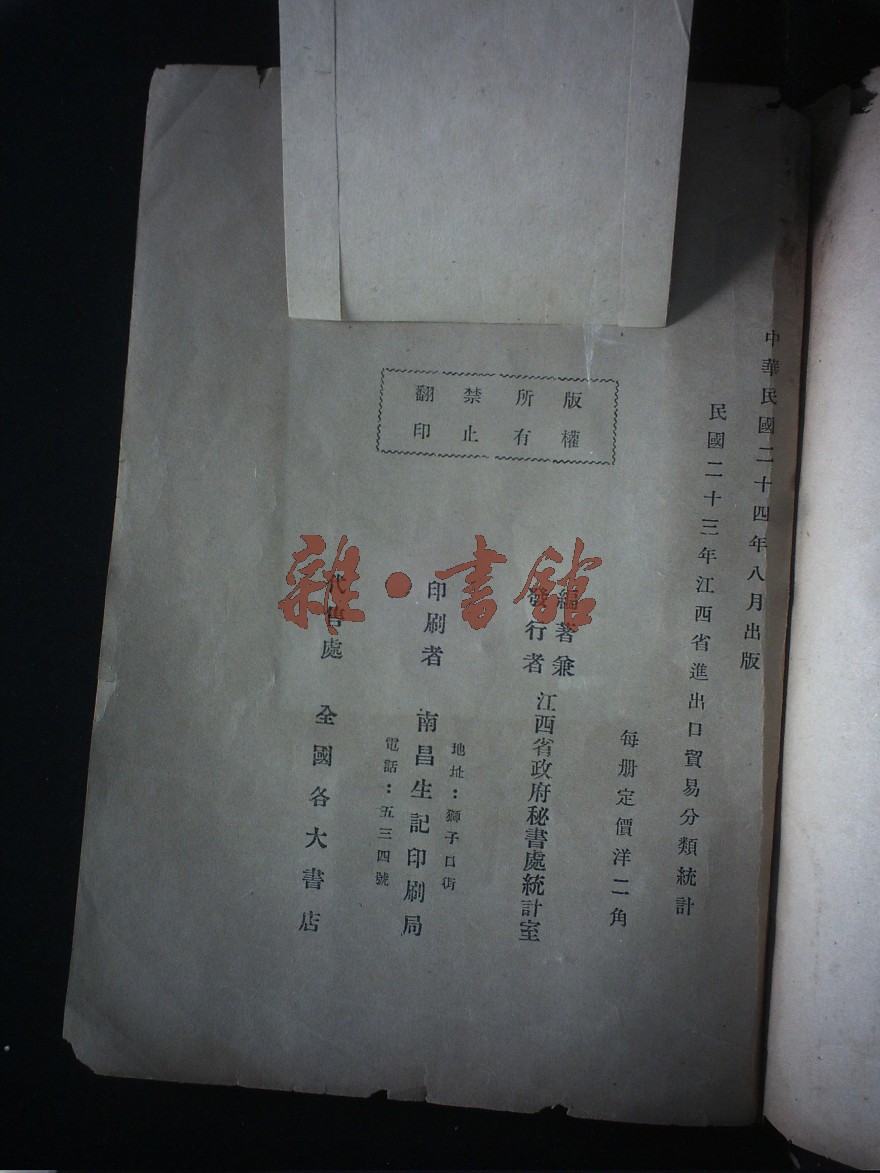 中華民國二十四年八月出版
民國二十三年江西省進出口貿易分類統計
每册定價洋二角
編著兼
發行者
江西省政府秘書處統計室
印刷者
南昌生記印刷局
地址：獅子口街
電話：五三四號
代售處
全國各大書店
版權
所有
禁止
翻印
雜·書館